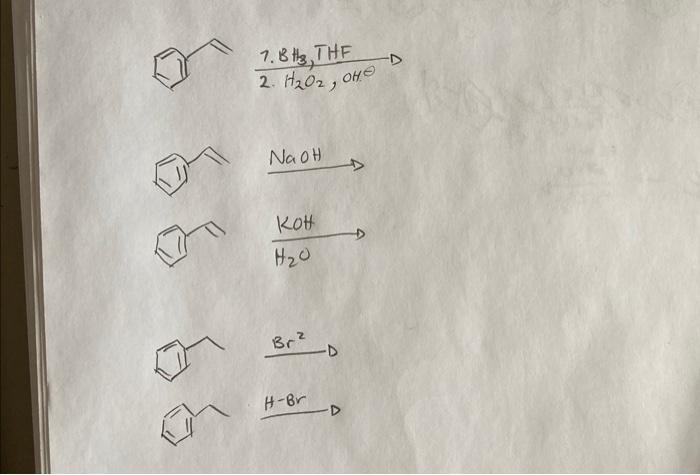 1. BH3, THF
2. H2O2, OH⊖
NaOH
KOH
H2O
Br²
H-Br